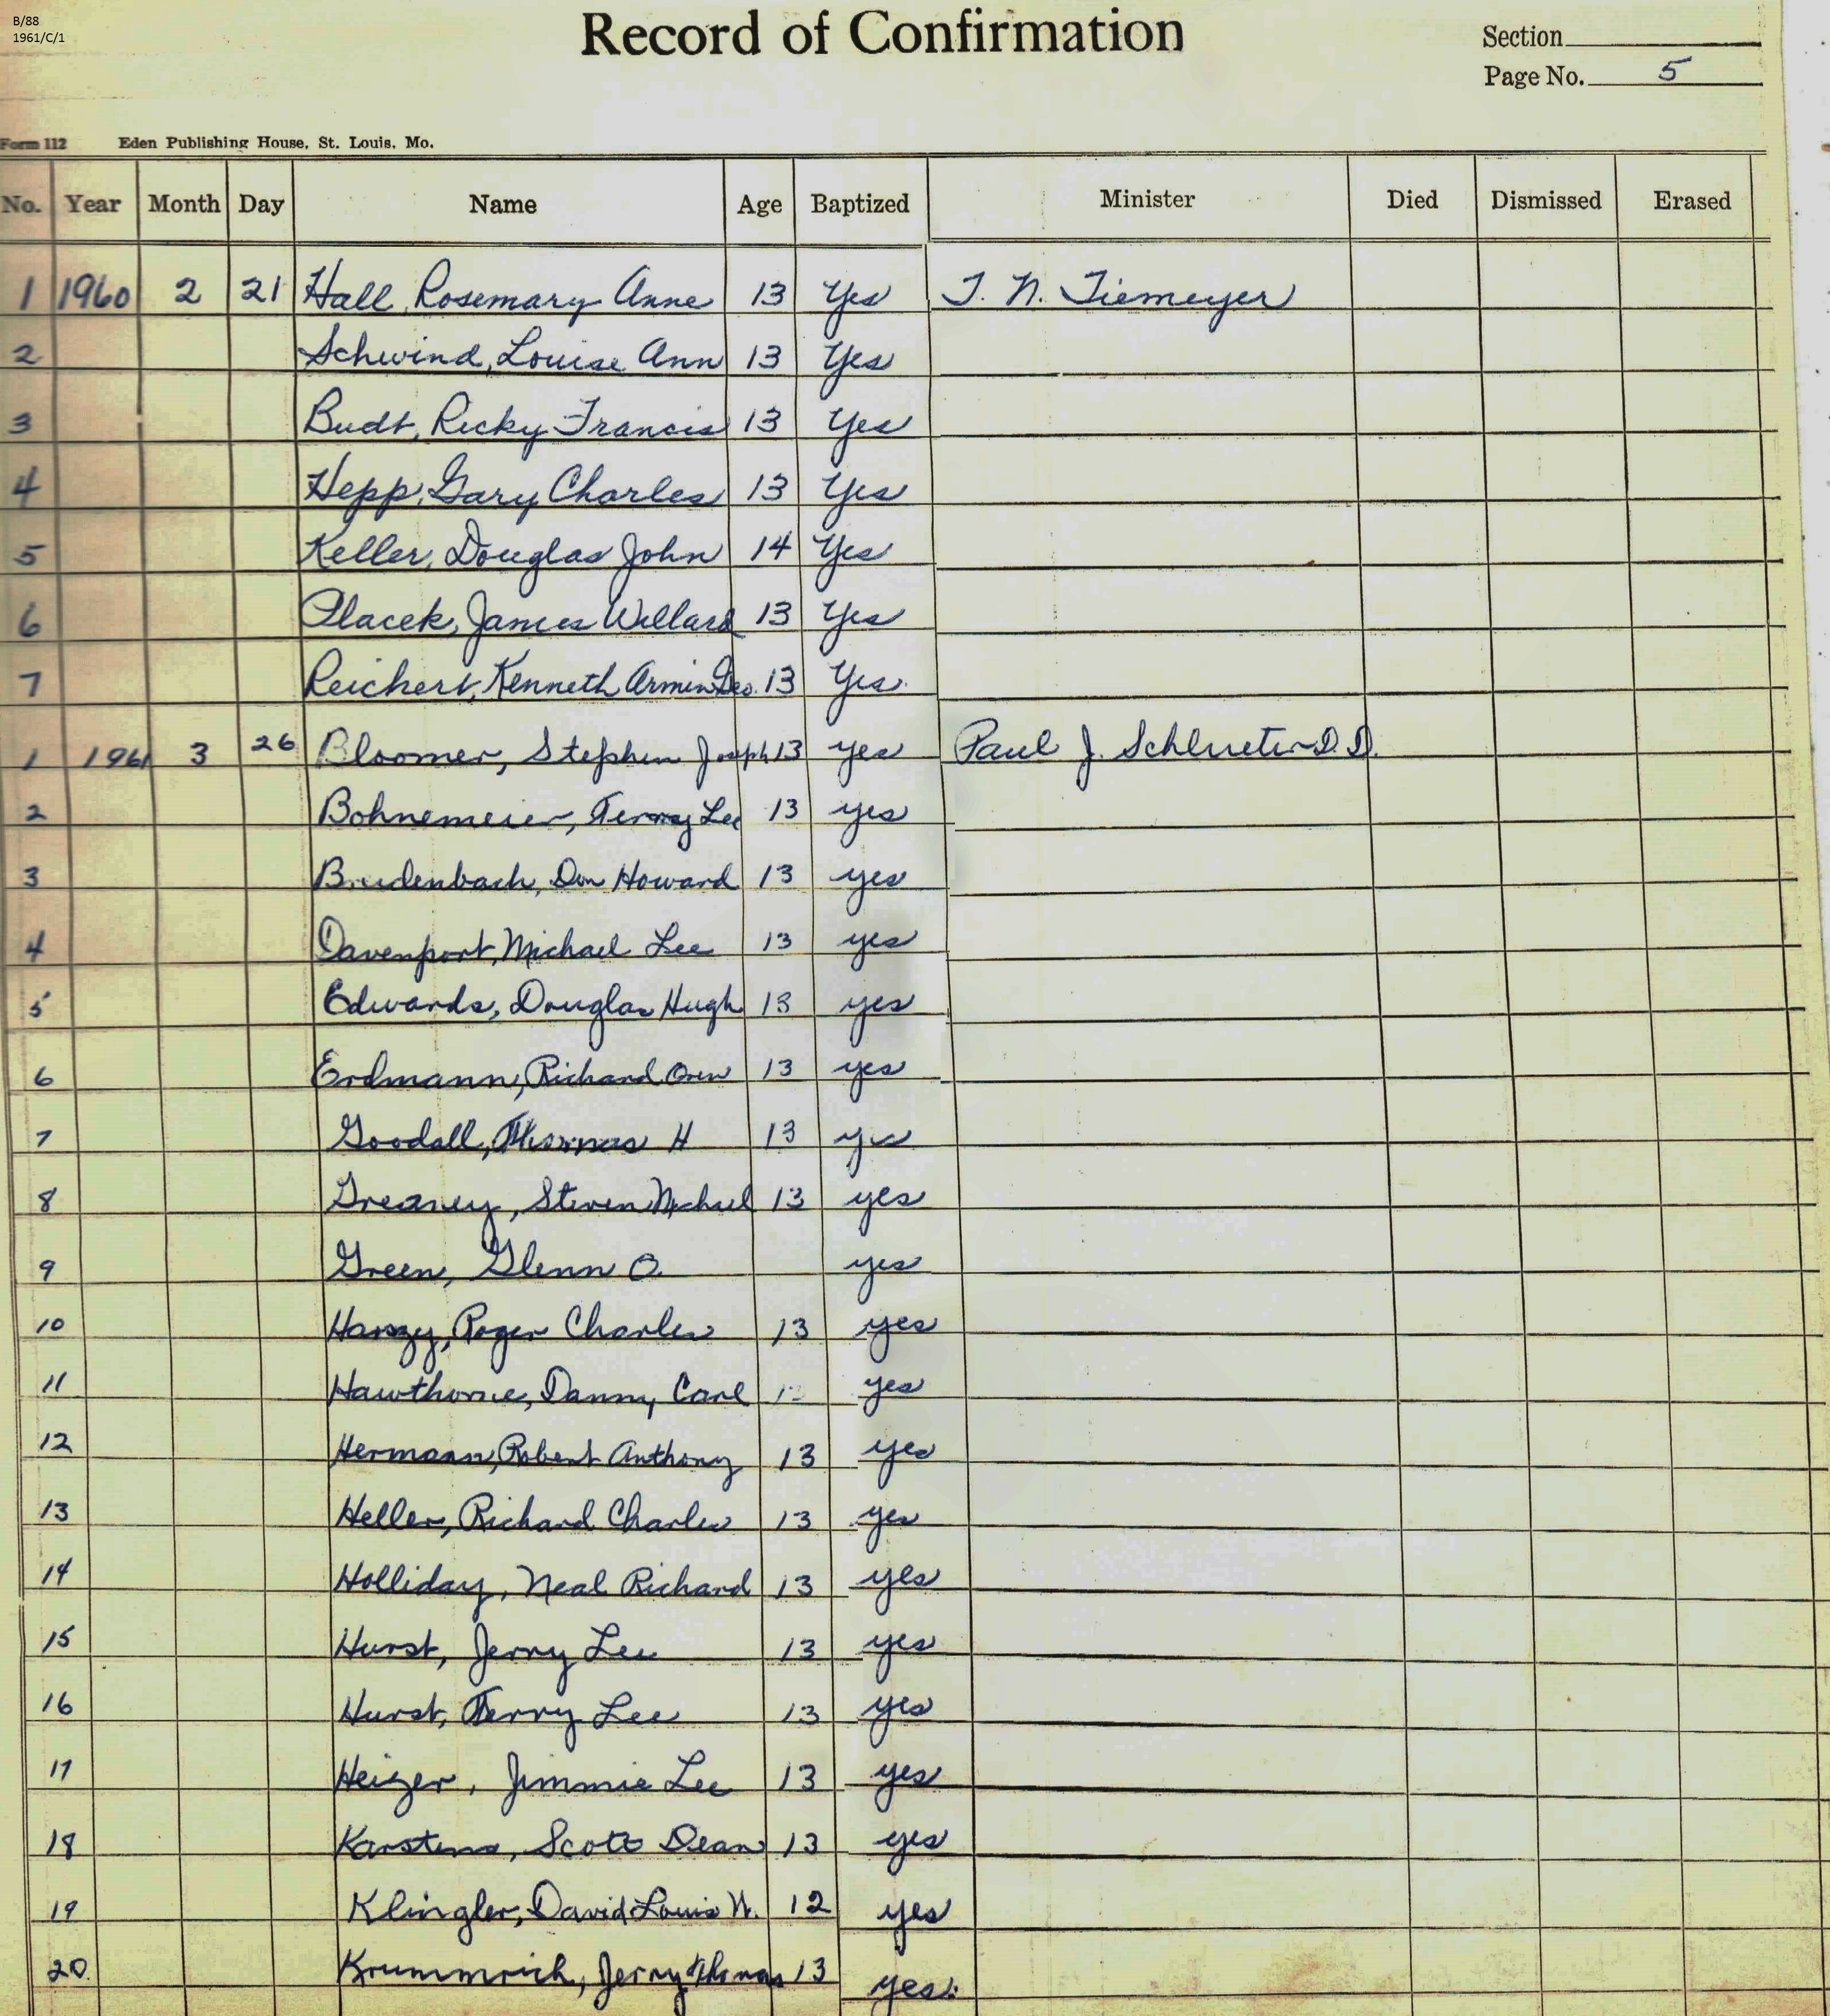 B/88
1961/C/1
Record of Confirmation
Section
Page No. 5
Form 112 Eden Publishing House, St. Louis, Mo.
No. Year Month Day Name Age Baptized Minister Died Dismissed Erased
1 1960 2 21 Hall, Rosemary Anne 13 Yes T. N. Tiemeyer
2 Schwind, Louise Ann 13 Yes
3 Budt, Ricky Francis 13 Yes
4 Hepp, Gary Charles 13 Yes
5 Keller, Douglas John 14 Yes
6 Placek, James Willard 13 Yes
7 Reichert, Kenneth Armin Geo. 13 Yes
1 1961 3 26 Bloomer, Stephen Joseph 13 yes Paul J. Schlueter D.D.
2 Bohnemeier, Terry Lee 13 yes
3 Breidenbach, Don Howard 13 yes
4 Davenport, Michael Lee 13 yes
5 Edwards, Douglas Hugh 13 yes
6 Erdmann, Richard Oren 13 yes
7 Goodall, Thomas H 13 yes
8 Greaney, Steven Michael 13 yes
9 Green, Glenn O. yes
10 Harszy, Roger Charles 13 yes
11 Hawthorne, Danny Carl yes
12 Hermann, Robert Anthony 13 yes
13 Heller, Richard Charles 13 yes
14 Holliday, Neal Richard 13 yes
15 Hurst, Jerry Lee 13 yes
16 Hurst, Terry Lee 13 yes
17 Heizer, Jimmie Lee 13 yes
18 Karstens, Scott Dean 13 yes
19 Klingler, David Louis W. 12 yes
20 Krummrich, Jerry Thomas 13 yes.